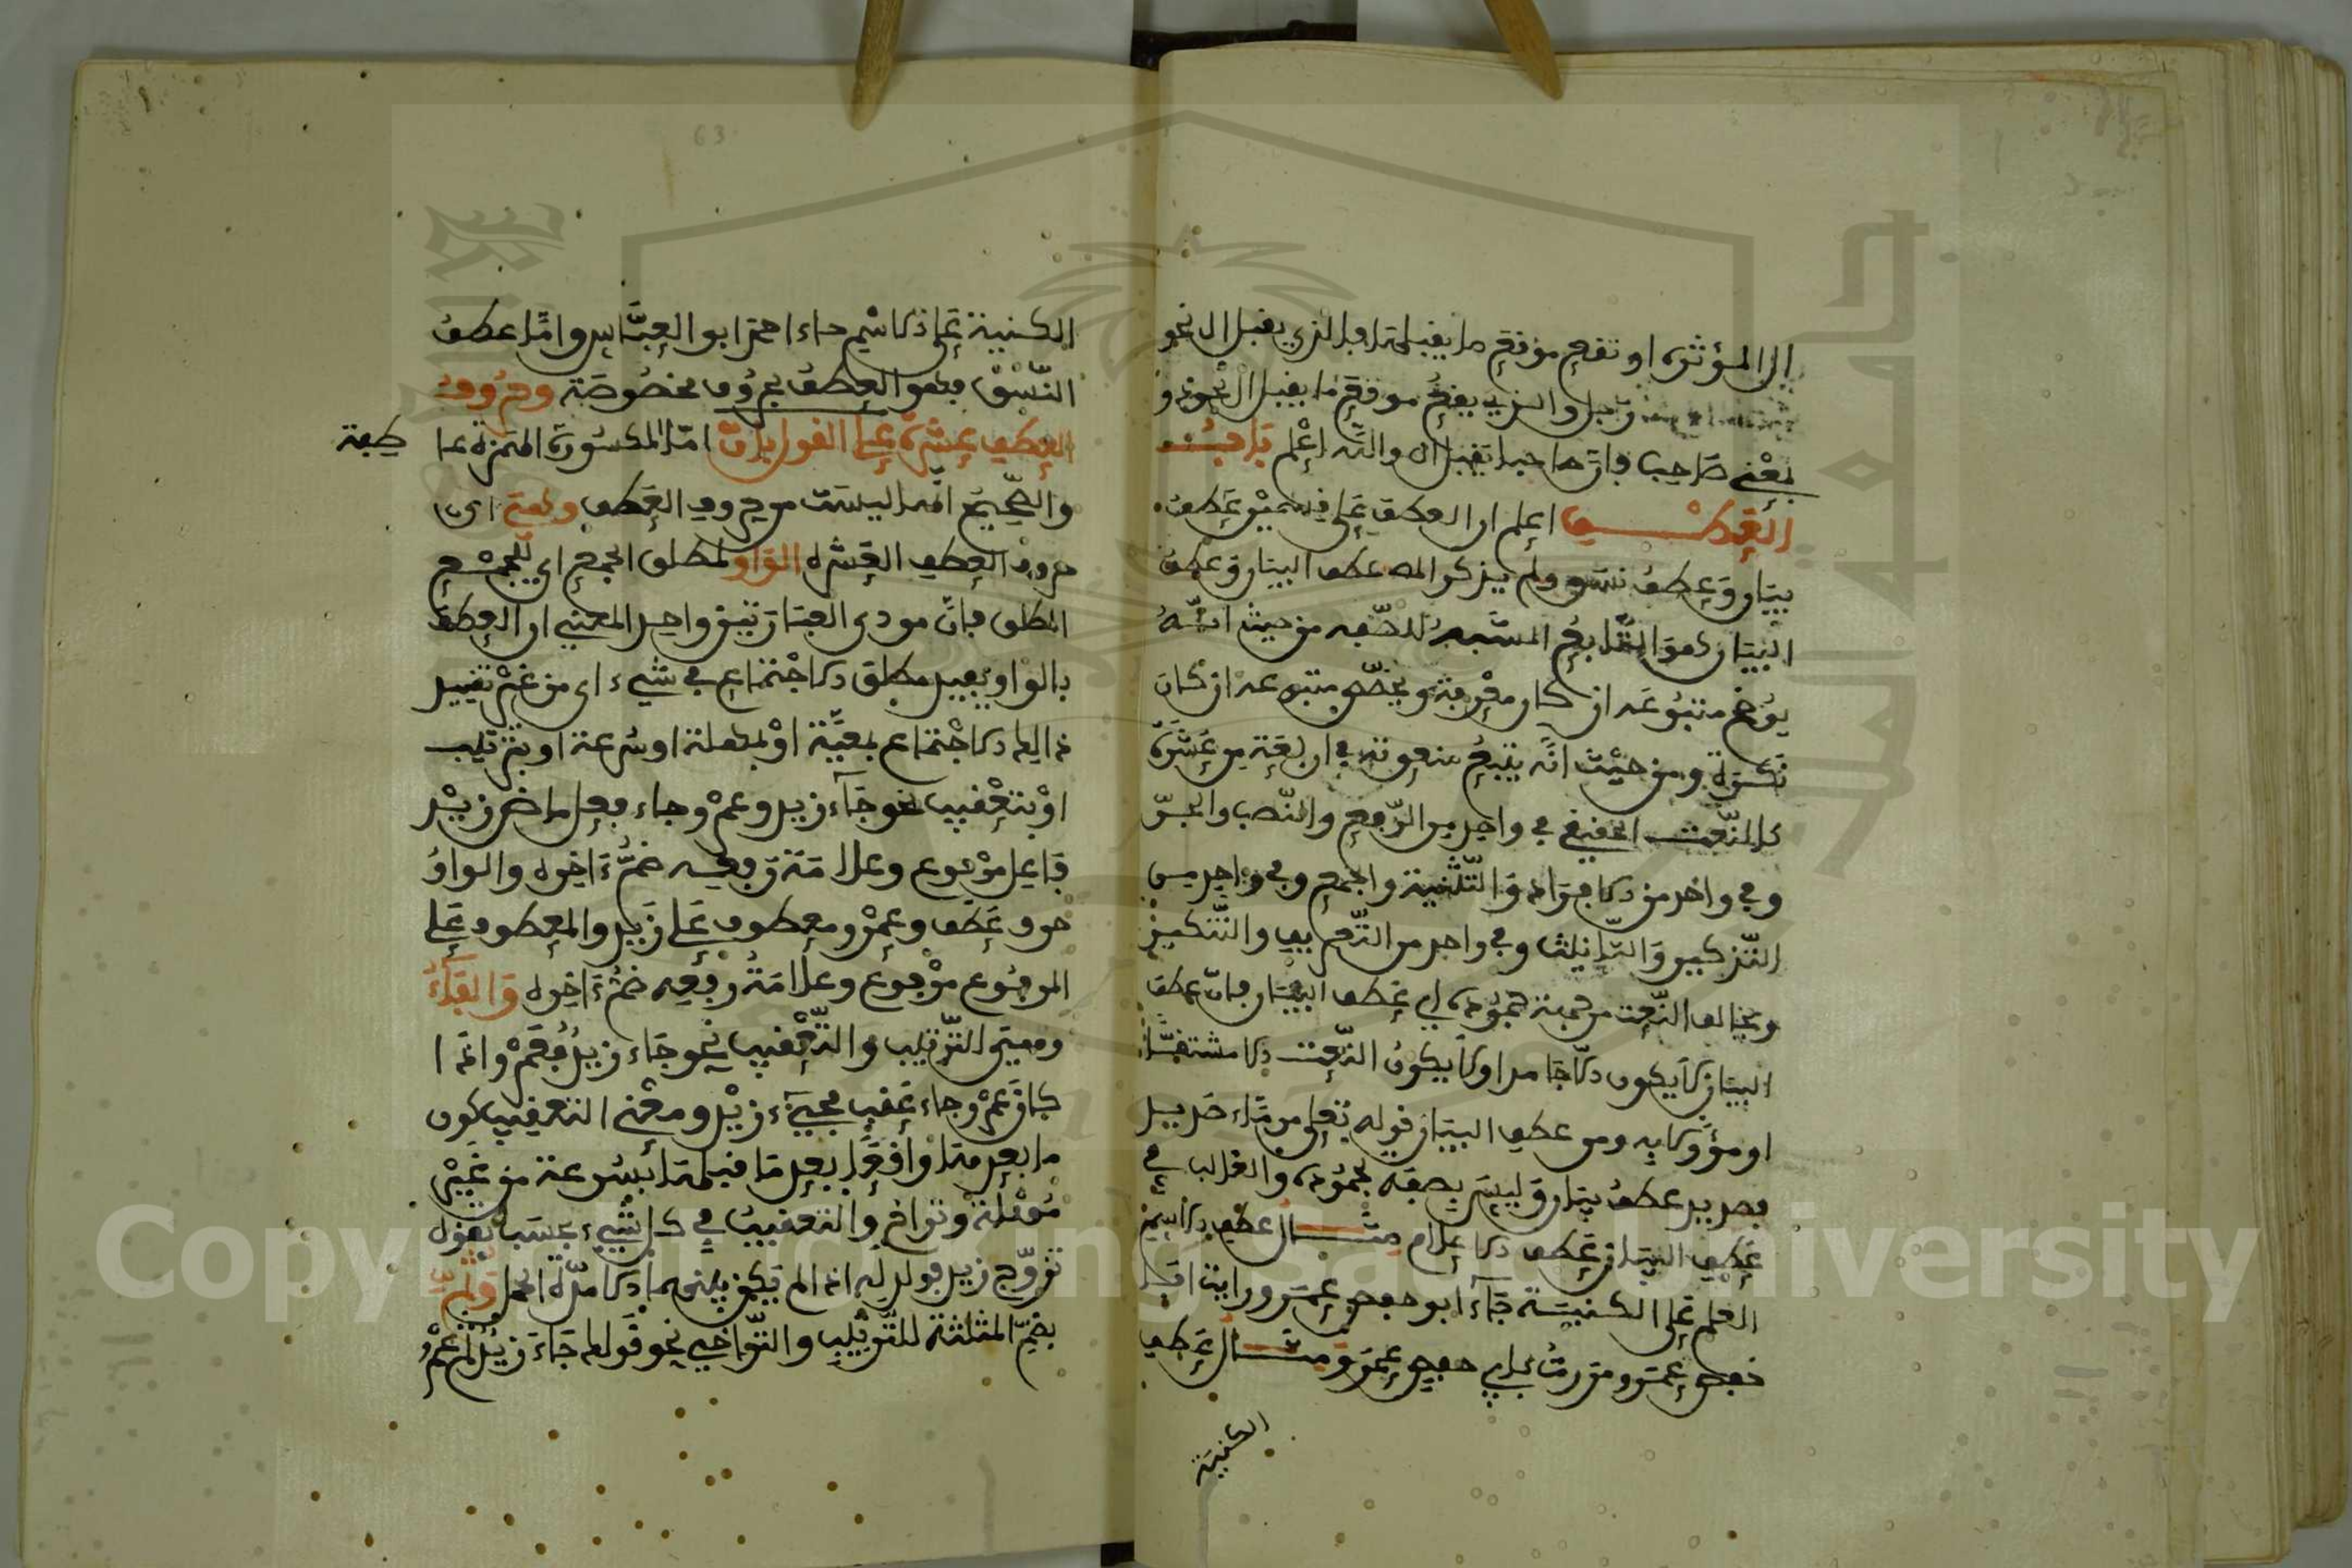 ال المؤثرة او تقع موقع ما يقبلها والذي يقبل ال نحو
رجل والذي يقع موقع ما يقبل ال نحو ذو
بمعنى صاحب فان صاحبا يقبل ال والله اعلم باب
العطف اعلم ان العطف على قسمين عطف
بيان وعطف نسق ولم يذكر المص عطف البيان وعطف
البيان هو التابع المشبه للصفة من حيث انه
يوضح متبوعه ان كان معرفة ويخصص متبوعه ان كان
نكرة ومن حيث انه يتبع منعوته في اربعة من عشرة
كالنعت الحقيقي في واحد من الرفع والنصب والجر
وفي واحد من الافراد والتثنية والجمع وفي واحد من
التذكير والتانيث وفي واحد من التعريف والتنكير
ويخالف النعت من جهة جموده اي عطف البيان فان عطف
البيان لا يكون الا جامدا ولا يكون النعت الا مشتقا
او مؤولا به ومن عطف البيان قوله تعلى من ماء صديد
فصديد عطف بيان وليس بصفة لجموده والغالب في
عطف البيان عطف الاعلام مثال عطف الاسم
العلم على الكنية جاء ابو حفص عمر ورايت ابا
حفص عمر ومررت بابي حفص عمر ومثال عطف
الكنية
63
الكنية على الاسم جاء احمد ابو العباس واما عطف
النسق فهو العطف بحروف مخصوصة وحروف
العطف عشرة على القول بان اما المكسورة الهمزة عا
طفة
والصحيح انها ليست من حروف العطف وهي اي
حروف العطف العشرة الواو لمطلق الجمع اي للجمع
المطلق فان مودى العبارتين واحد المعنى ان العطف
بالواو يفيد مطلق الاجتماع في شيء اي من غير تقييد
ذالك الاجتماع بمعية او بمهلة او سرعة او بترتيب
او بتعقيب نحو جاء زيد وعمرو جاء فعل ماض زيد
فاعل مرفوع وعلامة رفعه ضم ءاخره والواو
حرف عطف وعمرو معطوف على زيد والمعطوف على
المرفوع مرفوع وعلامة رفعه ضم ءاخره والفاء
وهي للترتيب والتعقيب نحو جاء زيد فعمرو اذا
كان عمرو جاء عقب مجيء زيد ومعنى التعقيب كون
ما بعدها واقعا بعد ما قبلها بسرعة من غير
مهلة وتراخ والتعقيب في كل شيء بحسبه تقول
تزوج زيد فولد له اذا لم يكن بينهما الا مدة الحمل وثم
بضم المثلثة للترتيب والتراخي نحو قولك جاء زيد ثم عمرو
Copyright © King Saud University